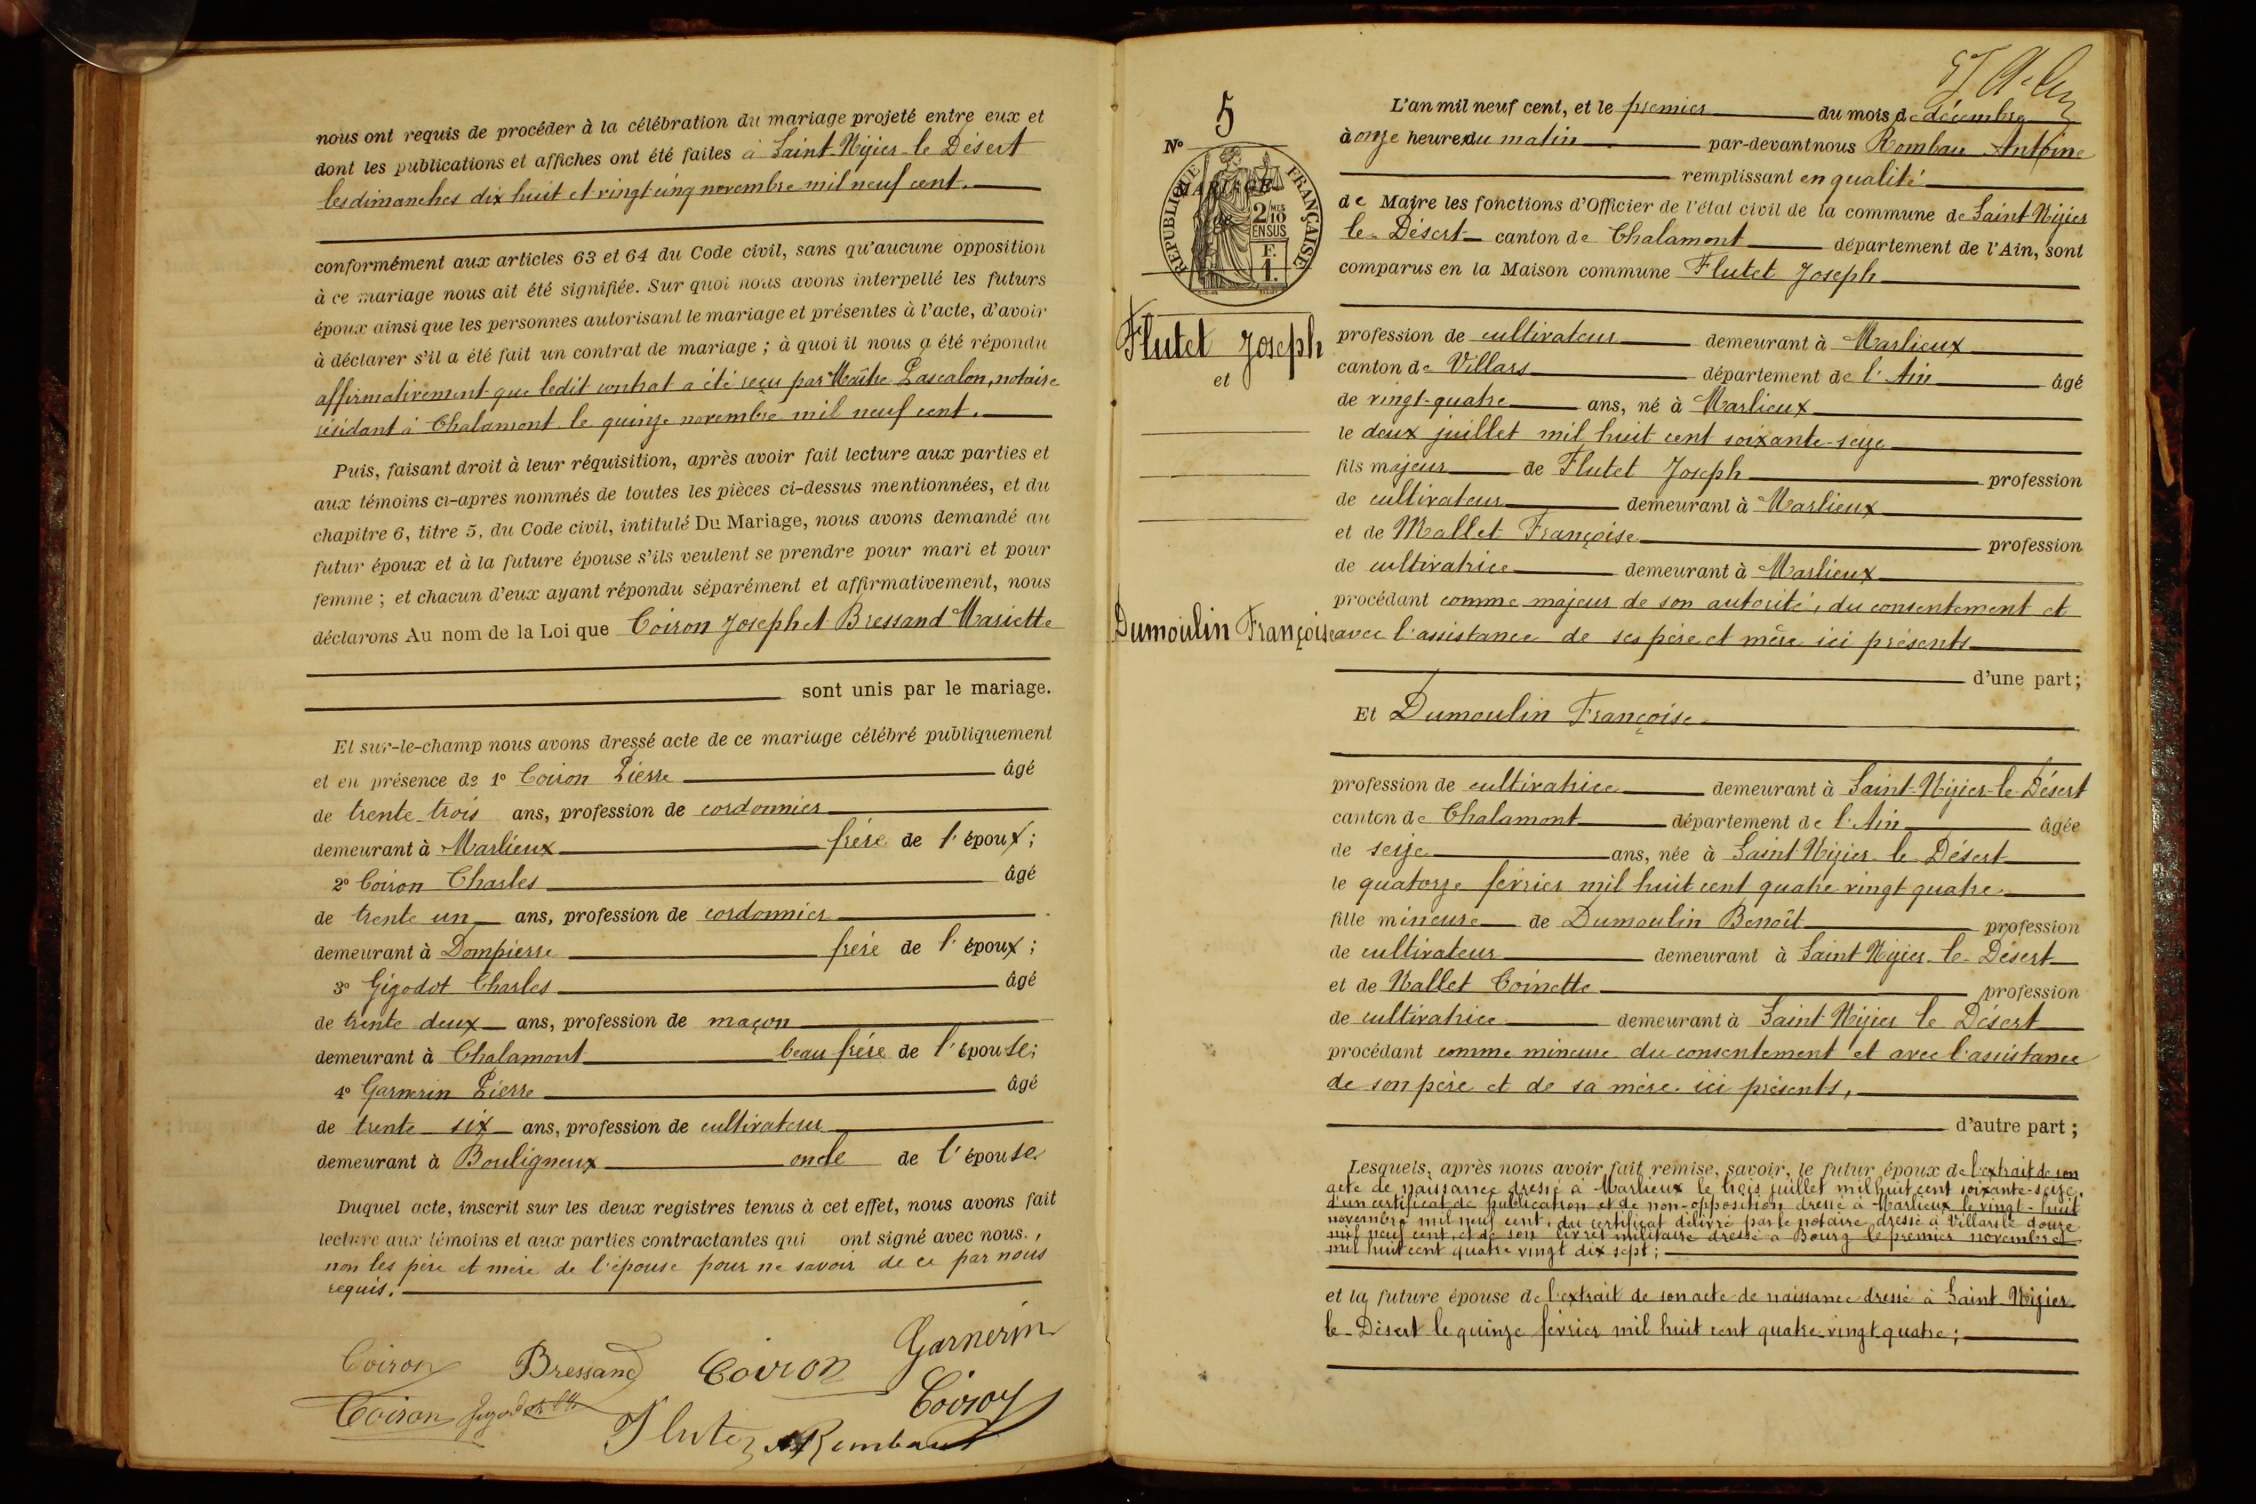 nous ont requis de procéder à la célébration du mariage projeté entre eux et
dont les publications et affiches ont été faites à Saint-Nizier-le Désert
les dimanches dix huit et vingt cinq novembre mil neuf cent.
conformément aux articles 63 et 64 du Code civil, sans qu'aucune opposition
à ce mariage nous ait été signifiée. Sur quoi nous avons interpellé les futurs
époux ainsi que les personnes autorisant le mariage et présentes à l'acte, d'avoir
à déclarer s'il a été fait un contrat de mariage ; à quoi il nous a été répondu
affirmativement que ledit contrat a été reçu par Maître Pascalon, notaire
résidant à Chalamont le quinze novembre mil neuf cent.
Puis, faisant droit à leur réquisition, après avoir fait lecture aux parties et
aux témoins ci-après nommés de toutes les pièces ci-dessus mentionnées, et du
chapitre 6, titre 5, du Code civil, intitulé Du Mariage, nous avons demandé au
futur époux et à la future épouse s'ils veulent se prendre pour mari et pour
femme ; et chacun d'eux ayant répondu séparément et affirmativement, nous
déclarons Au nom de la Loi que Coiron Joseph et Bressand Mariette
sont unis par le mariage.
Et sur-le-champ nous avons dressé acte de ce mariage célébré publiquement
et en présence de 1° Coiron Pierre âgé
de trente trois ans, profession de cordonnier
demeurant à Marlieux frère de l'époux ;
2° Coiron Charles âgé
de trente un ans, profession de cordonnier
demeurant à Dompierre frère de l'époux ;
3° Gigodot Charles âgé
de trente deux ans, profession de maçon
demeurant à Chalamont beau frère de l'épouse ;
4° Garnerin Pierre âgé
de trente six ans, profession de cultivateur
demeurant à Bouligneux oncle de l'épouse
Duquel acte, inscrit sur les deux registres tenus à cet effet, nous avons fait
lecture aux témoins et aux parties contractantes qui ont signé avec nous,
non les père et mère de l'épouse pour ne savoir de ce par nous
requis.
Garnerin
Coiron Bressand Coiron
Coiron Coiron
Flutet Rombau
5
N°
MARIAGE
de
RÉPUBLIQUE FRANÇAISE
2/10
EN SUS
Flutet Joseph
et
Dumoulin Françoise
L'an mil neuf cent, et le premier du mois de décembre
à onze heures du matin par-devant nous Rombau Antoine
remplissant en qualité
de Maire les fonctions d'Officier de l'état civil de la commune de Saint Nizier
le Désert canton de Chalamont département de l'Ain, sont
comparus en la Maison commune Flutet Joseph
profession de cultivateur demeurant à Marlieux
canton de Villars département de l'Ain âgé
de vingt-quatre ans, né à Marlieux
le deux juillet mil huit cent soixante-seize
fils majeur de Flutet Joseph profession
de cultivateur demeurant à Marlieux
et de Mallet Françoise profession
de cultivatrice demeurant à Marlieux
procédant comme majeur de son autorité, du consentement et
avec l'assistance de ses père et mère ici présents
d'une part ;
Et Dumoulin Françoise
profession de cultivatrice demeurant à Saint-Nizier-le-Désert
canton de Chalamont département de l'Ain âgée
de seize ans, née à Saint Nizier le Désert
le quatorze février mil huit cent quatre vingt quatre
fille mineure de Dumoulin Benoît profession
de cultivateur demeurant à Saint Nizier le Désert
et de Nallet Toinette profession
de cultivatrice demeurant à Saint Nizier le Désert
procédant comme mineure du consentement et avec l'assistance
de son père et de sa mère ici présents,
d'autre part ;
Lesquels, après nous avoir fait remise, savoir, le futur époux de l'extrait de son
acte de naissance dressé à Marlieux le trois juillet mil huit cent soixante-seize,
d'un certificat de publication et de non-opposition dressé à Marlieux le vingt-huit
novembre mil neuf cent, du certificat délivré par le notaire dressé à Villars le douze
mil neuf cent, et de son livret militaire dressé à Bourg le premier novembre
mil huit cent quatre vingt dix sept ;
et la future épouse de l'extrait de son acte de naissance dressé à Saint Nizier
le Désert le quinze février mil huit cent quatre vingt quatre ;